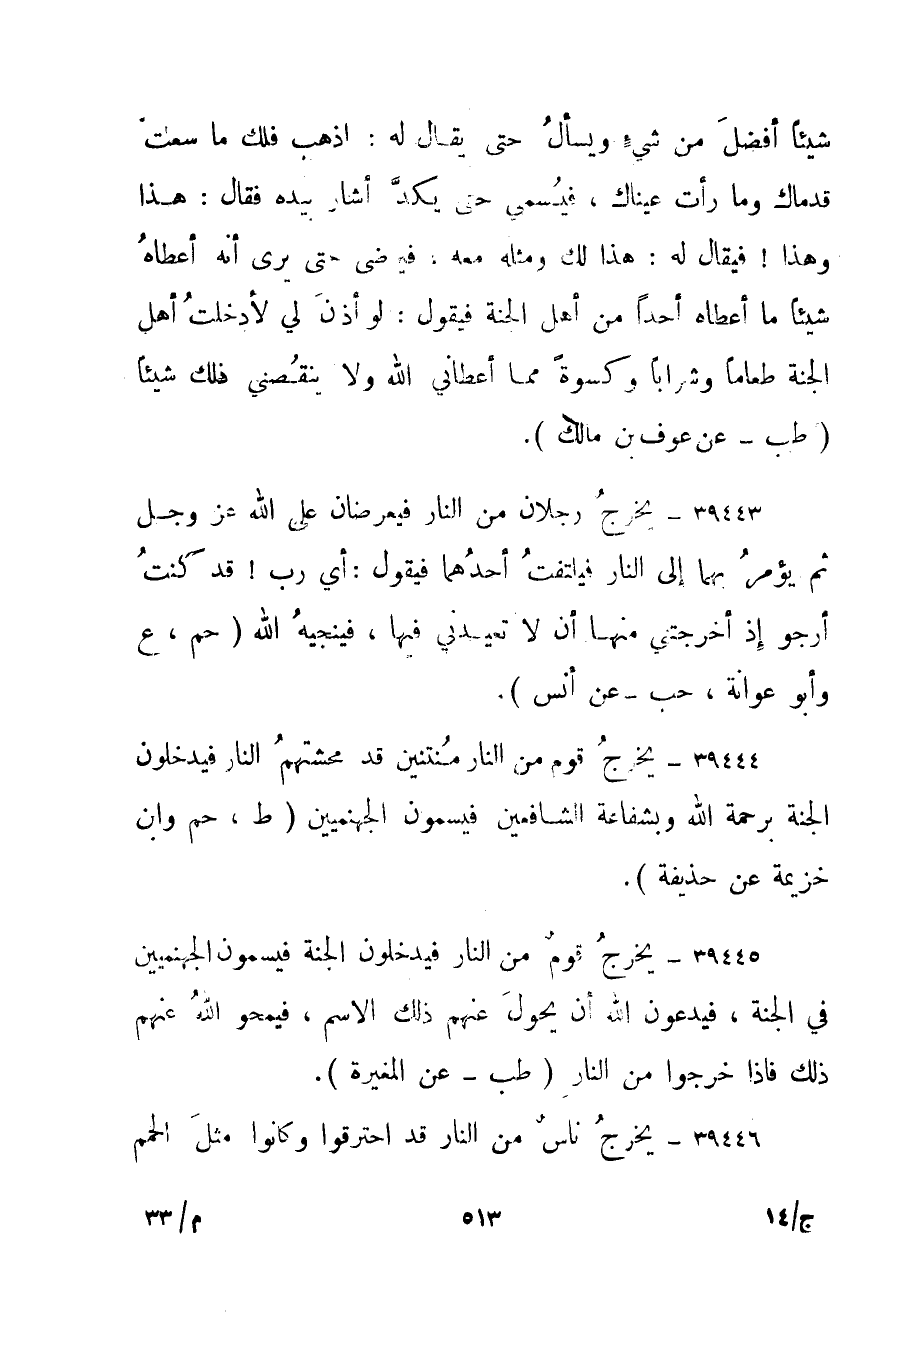 شيئاً أفضلَ من شيءٍ ويسألُ حتى يقال له : اذهب فلك ما سعت
قدماك وما رأت عيناك ، فيُسمي حتى يكدَّ أشار بيده فقال : هذا
وهذا ! فيقال له : هذا لك ومثله معه ، فيرضى حتى يرى أنه أعطاهُ
شيئاً ما أعطاه أحداً من أهل الجنة فيقول : لو أذنَ لي لأدخلتُ أهل
الجنة طعاماً وشراباً وكسوةً مما أعطاني الله ولا ينقُصني ذلك شيئاً
( طب - عن عوف بن مالك ).
٣٩٤٤٣ - يخرجُ رجلان من النار فيعرضان على الله عز وجل
ثم يؤمرُ بهما إلى النار فيلتفتُ أحدُهما فيقول : أي رب ! قد كنتُ
أرجو إذ أخرجتني منها أن لا تعيدني فيها ، فينجيهُ الله ( حم ، ع
وأبو عوانة ، حب - عن أنس ).
٣٩٤٤٤ - يخرجُ قوم من النار مُنتنين قد محشتهمُ النار فيدخلون
الجنة برحمة الله وبشفاعة الشافعين فيسمون الجهنميين ( ط ، حم وابن
خزيمة عن حذيفة ).
٣٩٤٤٥ - يخرجُ قومٌ من النار فيدخلون الجنة فيسمون الجهنميين
في الجنة ، فيدعون الله أن يحولَ عنهم ذلك الاسم ، فيمحو اللهُ عنهم
ذلك فاذا خرجوا من النار ( طب - عن المغيرة ).
٣٩٤٤٦ - يخرجُ ناسٌ من النار قد احترقوا وكانوا مثلَ الحمم
ج/١٤ ٥١٣ م/٣٣